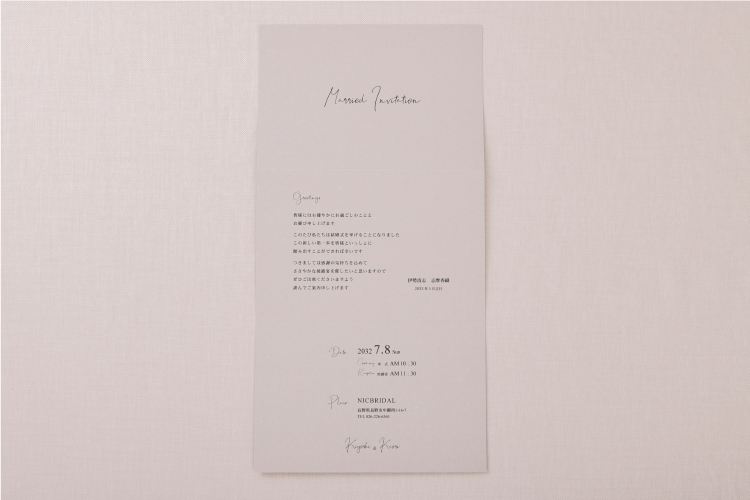 Married Invitation
Greetings
皆様にはお健やかにお過ごしのことと
お慶び申し上げます
このたび私たちは結婚式を挙げることになりました
この新しい第一歩を皆様といっしょに
踏み出すことができれば幸いです
つきましては感謝の気持ちを込めて
ささやかな披露宴を催したいと思いますので
ぜひご出席くださいますよう
謹んでご案内申し上げます
伊勢清志 志摩香織
Date 2032 7.8 Sun
Ceremony 挙 式 AM 10 : 30
Reception 披露宴 AM 11 : 30
Place NICBRIDAL
長野県長野市中御所
TEL
&